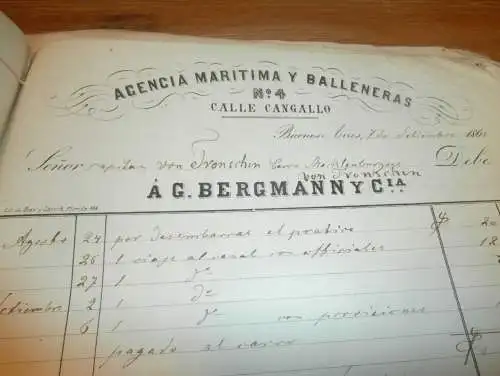 AGENCIA MARITIMA Y BALLENERAS
Nº. 4
CALLE CANGALLO
Buenos Aires, 7 de Setiembre 186
Señor capitan von Tronschin Debe
von Tronschin
Á G. BERGMANN Y CIA.
Agosto 24 por desembarcar el pratico $ 20
26 1 viaje al canal con officiales 12
27 1 do
Setiembre 2 1 do
6 1 do con provisiones
pagado el carro $